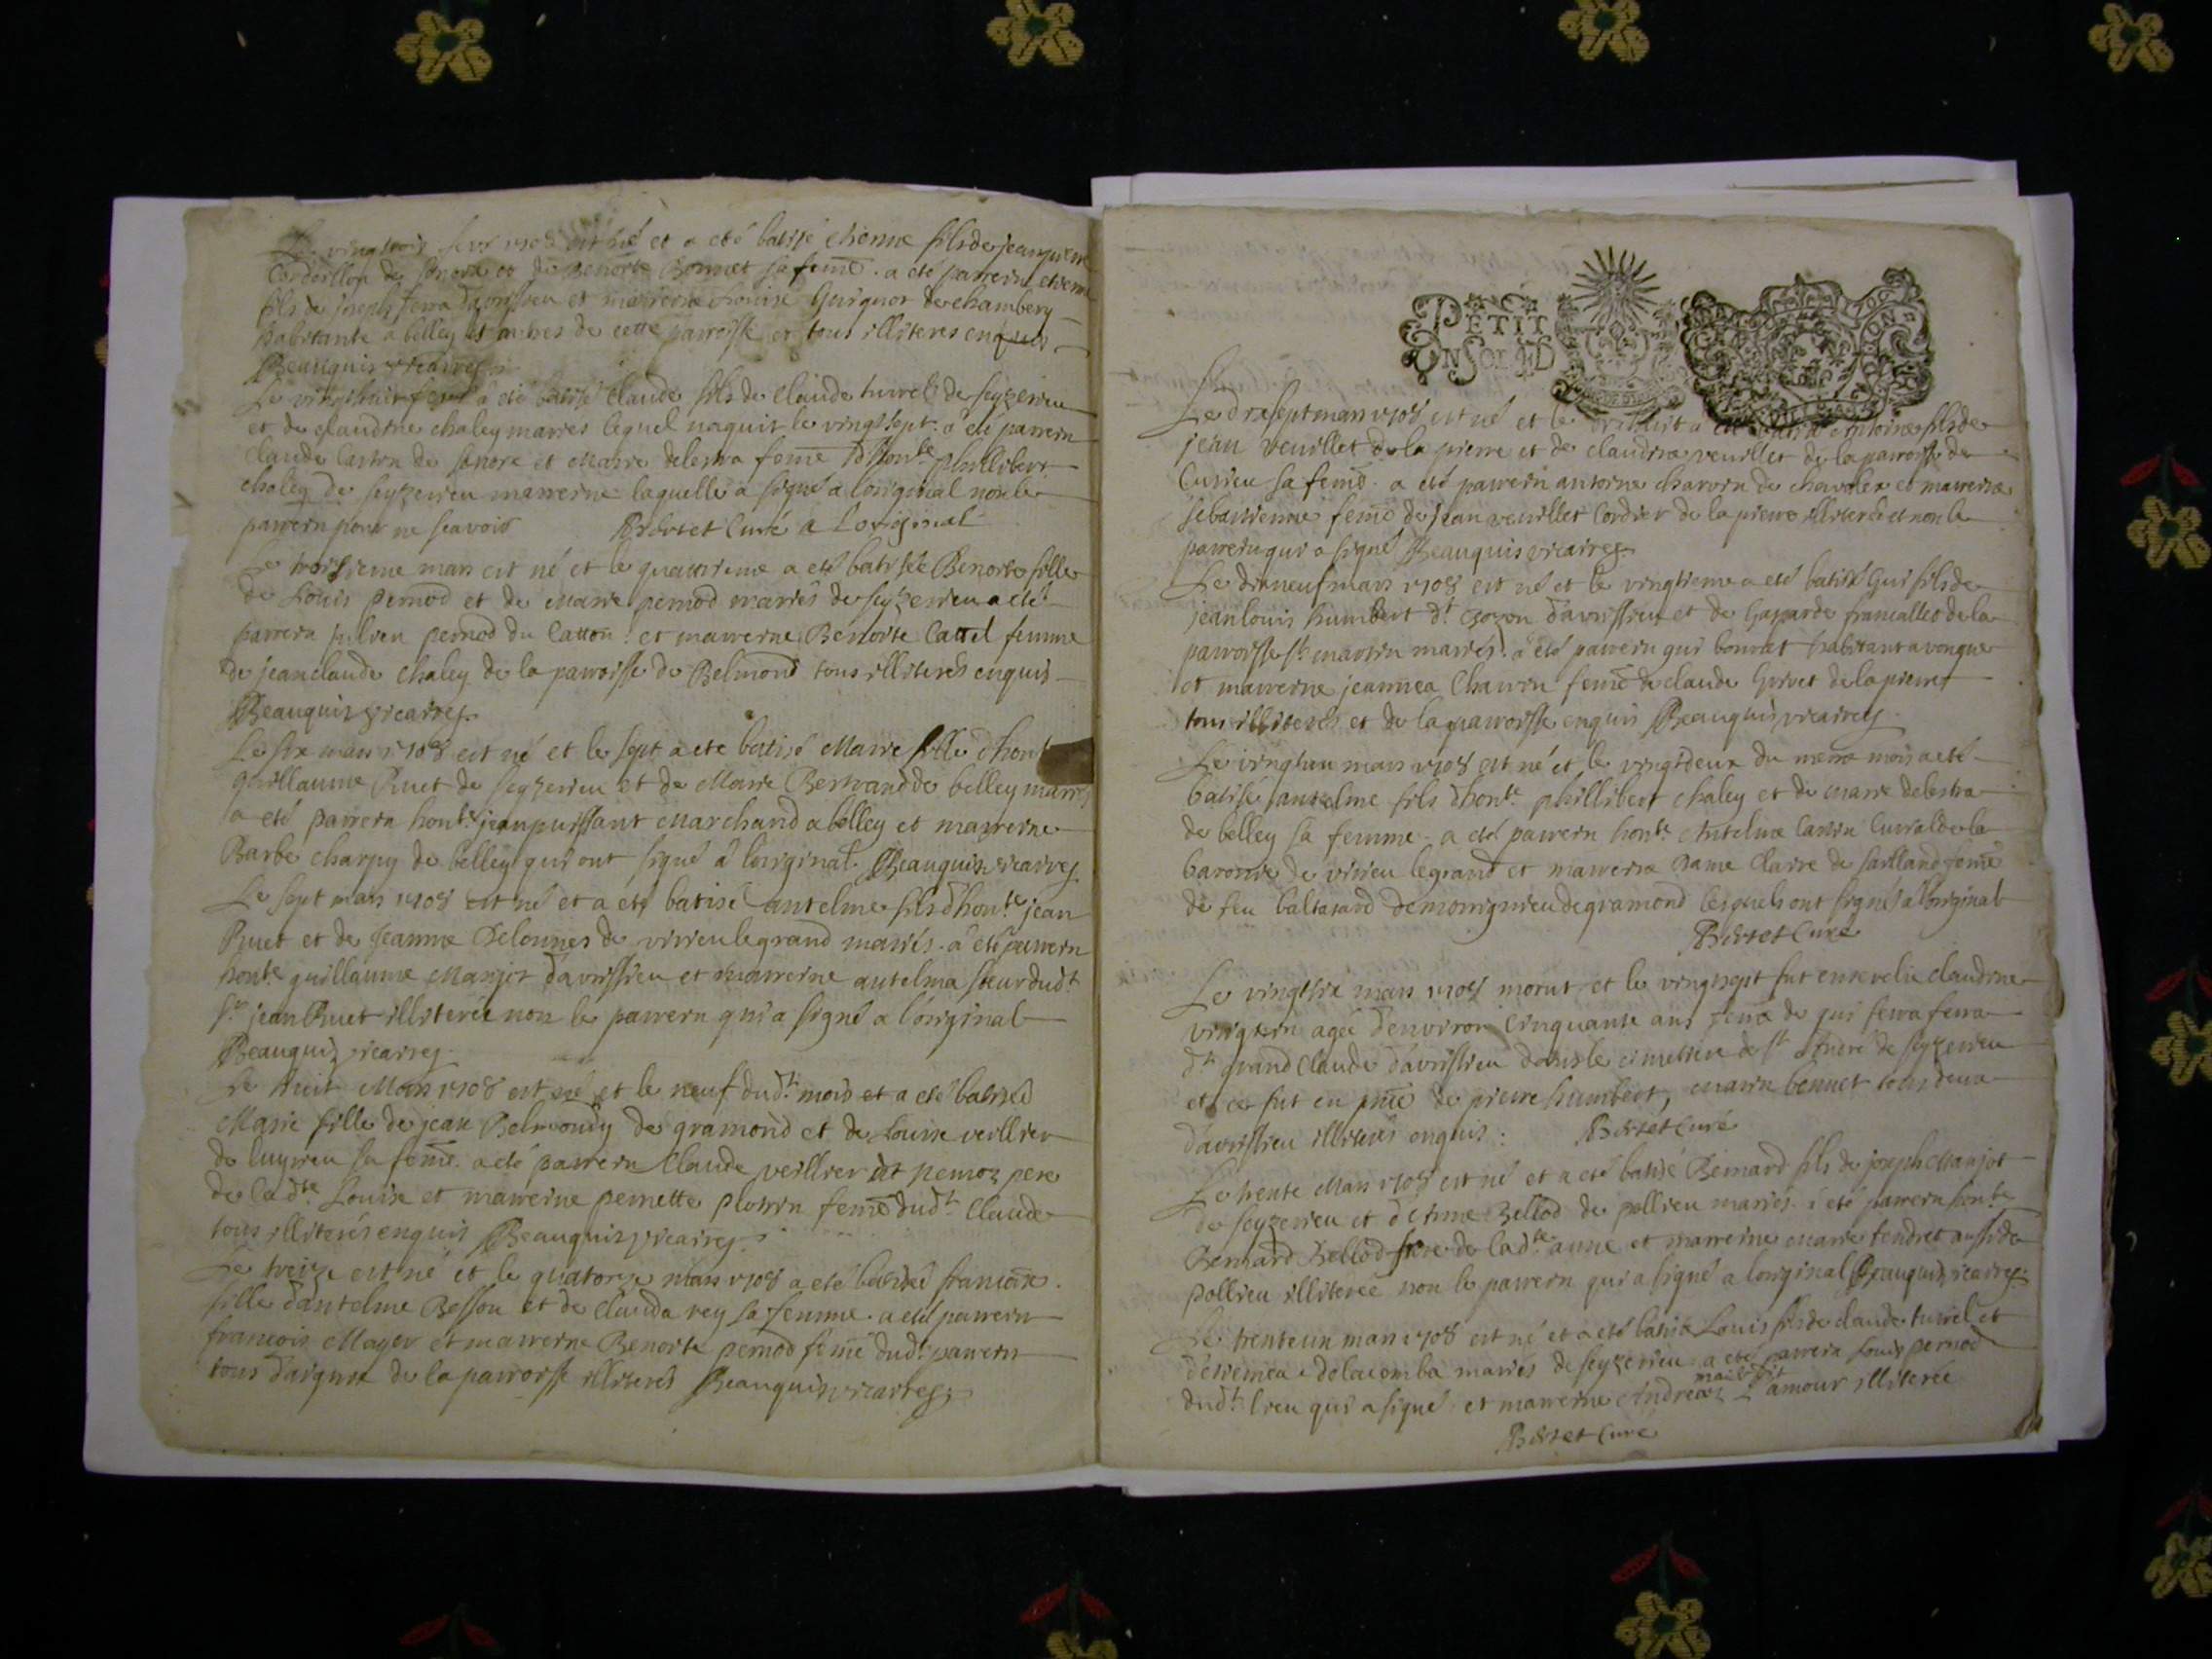 Le vingtrois fevr 1708 est né et a eté batisé etienne fils de jeanpierre
Cordeillon de senore et de Benoite Bonnet sa feme. a eté parrein etienne
fils de joseph ferra davrissieu et marreine Louise Guiguet de chambery
habitante a belley et autres de cette parroisse et tous illiteres enquis
Beauquis vicaires
Le vingthuit fevr a eté batisé claude fils de claude turrel de seyzerieu
et de claudine chaley mariés lequel naquit le vingtsept. a eté parrein
claude Castin de senore et Marie delestra feme d'honte. phillibert
chaley de seyzerieu marreine laquelle a signé a loriginal non le
parrein pour ne scavoir Bertet Curé a Loriginal
Le troisieme mars est né et le quattrieme a eté batisée Benoite fille
de Louis pernod et de Marie pernod mariés de seyzerieu a eté
parrein julien pernod du Catton: et marreine Benoite Cattel femme
de jeanclaude Chaley de la parroisse de Belmond tous illiterés enquis
Beauquis vicaires
Le six mars 1708 est né et le sept a eté batisé Marie fille d'hont
guillaume Ruet de seyzerieu et de Marie Bertrand de belley mariés
a eté parrein honte. jeanpuissant Marchand a belley et marreine
Barbe charpy de belley qui ont signé a loriginal. Beauquis vicaires
Le sept mars 1708 est né et a eté batisé antelme fils d'honte. jean
Ruet et de Jeanne Delounes de virieulegrand mariés. a eté parrein
honte. guillaume Marjot davrissieu et marreine antelma soeur dudt.
sr. jean Ruet illiterée non le parrein qui a signé a loriginal
Beauquis vicaires
Le huit Mars 1708 est né et le neuf dudt. mois et a eté batisé
Marie fille de jean Belmondy de gramond et de Louise veillier
de luyrieu sa feme. a eté parrein Claude veillier dt pernoz pere
de la dte. Louise et marreine pernette plottin feme dudt. Claude
tous illiterés enquis Beauquis vicaires
Le treize est né et le quatorze Mars 1708 a eté batisé francoise
fille d'antelme Besson et de Clauda rey sa femme. a eté parrein
francois Mayer et marreine Benoite pernod feme dudt. parrein
tous d'aignoz de la parroisse illiterés Beauquis vicaires
PETIT
UN SOL
Le dixsept mars 1708 est né et le dixhuit a eté batisé Antoine fils de
jean veuillet de la pierre et de claudine veuillet de la parroisse de
Cusieu sa feme. a eté parrein antoine charvin de chavoley et marreine
sebastienne feme de jean veuillet Cordier de la pierre illiterée et non le
parrein qui a signé Beauquis vicaires
Le dixneuf mars 1708 est né et le vingtieme a eté batisé Gui fils de
jeanlouis humbert dt. Gozon d'avrissieu et de Gasparde francallet de la
parroisse st. martin mariés. a eté parrein gui bonvat habitant a vongne
et marreine jeannea Charvin feme de claude Guivet de la pierre
tous illiterés et de la parroisse enquis Beauquis vicaires
Le vingtun mars 1708 est né et le vingtdeux du meme mois a eté
batisé antelme fils d'honte. phillibert chaley et de marie delestra
de belley sa femme. a eté parrein honte. Antelme Castin Curial de la
baronie de virieu legrand et marreine Dame Claire de sailland feme
de feu baltasard demoignieu de gramond lesquels ont signés a loriginal
Bertet Curé
Le vingtsix mars 1708 morut et le vingtsept fut ensevelie claudine
vingtrin agée d'environ Cinquante ans feme de gui ferra
dt. grand Claude d'avrissieu dans le cimetiere de st. Andre de seyzerieu
et ce fut en pnce de pierre humbert, marin bonnet tous deux
d'avrissieu illiterés enquis: Bertet Curé
Le trente Mars 1708 est né et a eté batisé Bernard fils de joseph Marjot
de seyzerieu et d'Anne Bellod de pollieu mariés. a eté parrein honte.
Bernard Bellod frere de la dte. anne et marreine marie tendret aussi de
pollieu illiterée non le parrein qui a signé a loriginal Beauquis vicaires
Le trenteun mars 1708 est né et a eté batisé Louis fils de claude turrel et
d'etiennea delacomba mariés de seyzerieu a eté parrein Louis pernod
dudt. lieu qui a signé et marreine Andrea L'amour illiterée
Bertet Curé